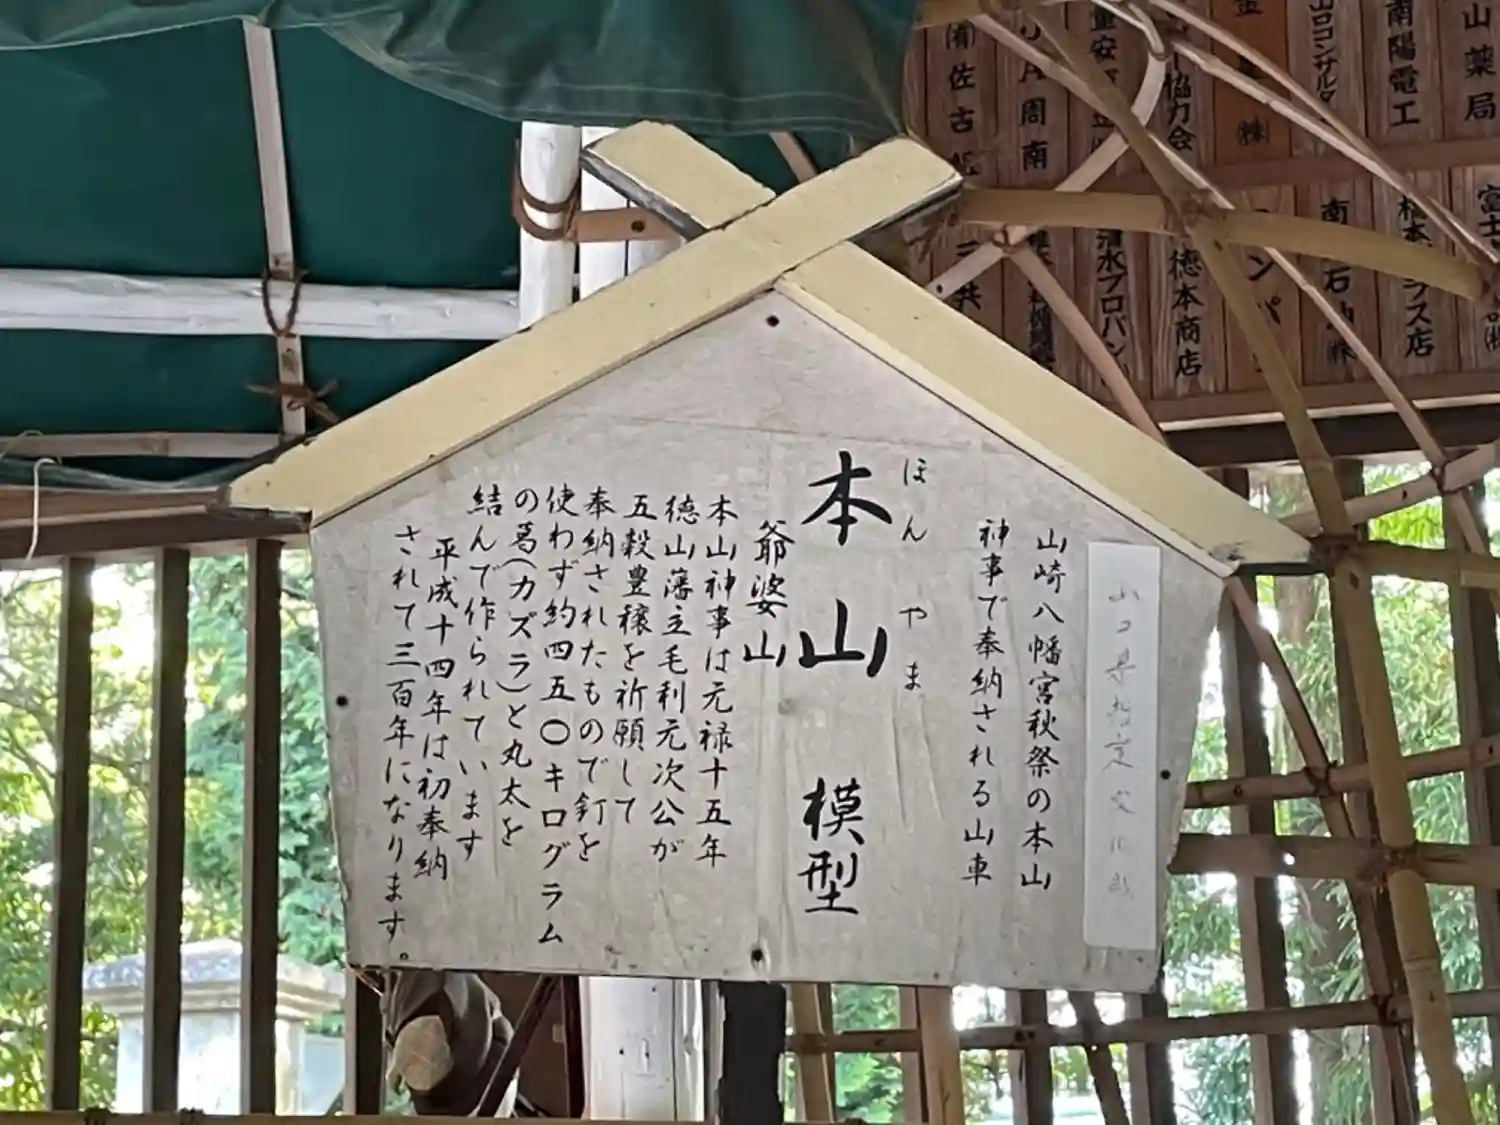 山口県指定文化財
山崎八幡宮秋祭の本山
神事で奉納される山車
ほんやま
本山 模型
爺婆山
本山神事は元禄十五年
徳山藩主毛利元次公が
五穀豊穣を祈願して
奉納されたもので釘を
使わず約四五〇キログラム
の葛(カズラ)と丸太を
結んで作られています
平成十四年は初奉納
されて三百年になります。
山薬局
南陽電工
山口コンサルタ
協力会
(株)
JA周南
(有)佐古
富士
橋本ガラス店
南
石油
(株)
徳本商店
清水プロパン
三共